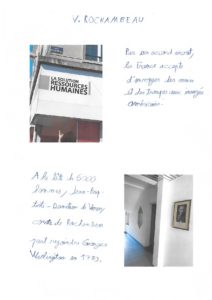 V. ROCHAMBEAU
Par un second
la France accepte
d'envoyer des
et des troupes aux insurgés
américains.
LA SOLUTION
RESSOURCES
HUMAINES
A la tête de 6000
hommes, Jean-Bap
tiste-Donatien de
comte de Rochambeau
peut rejoindre Georges
Washington en